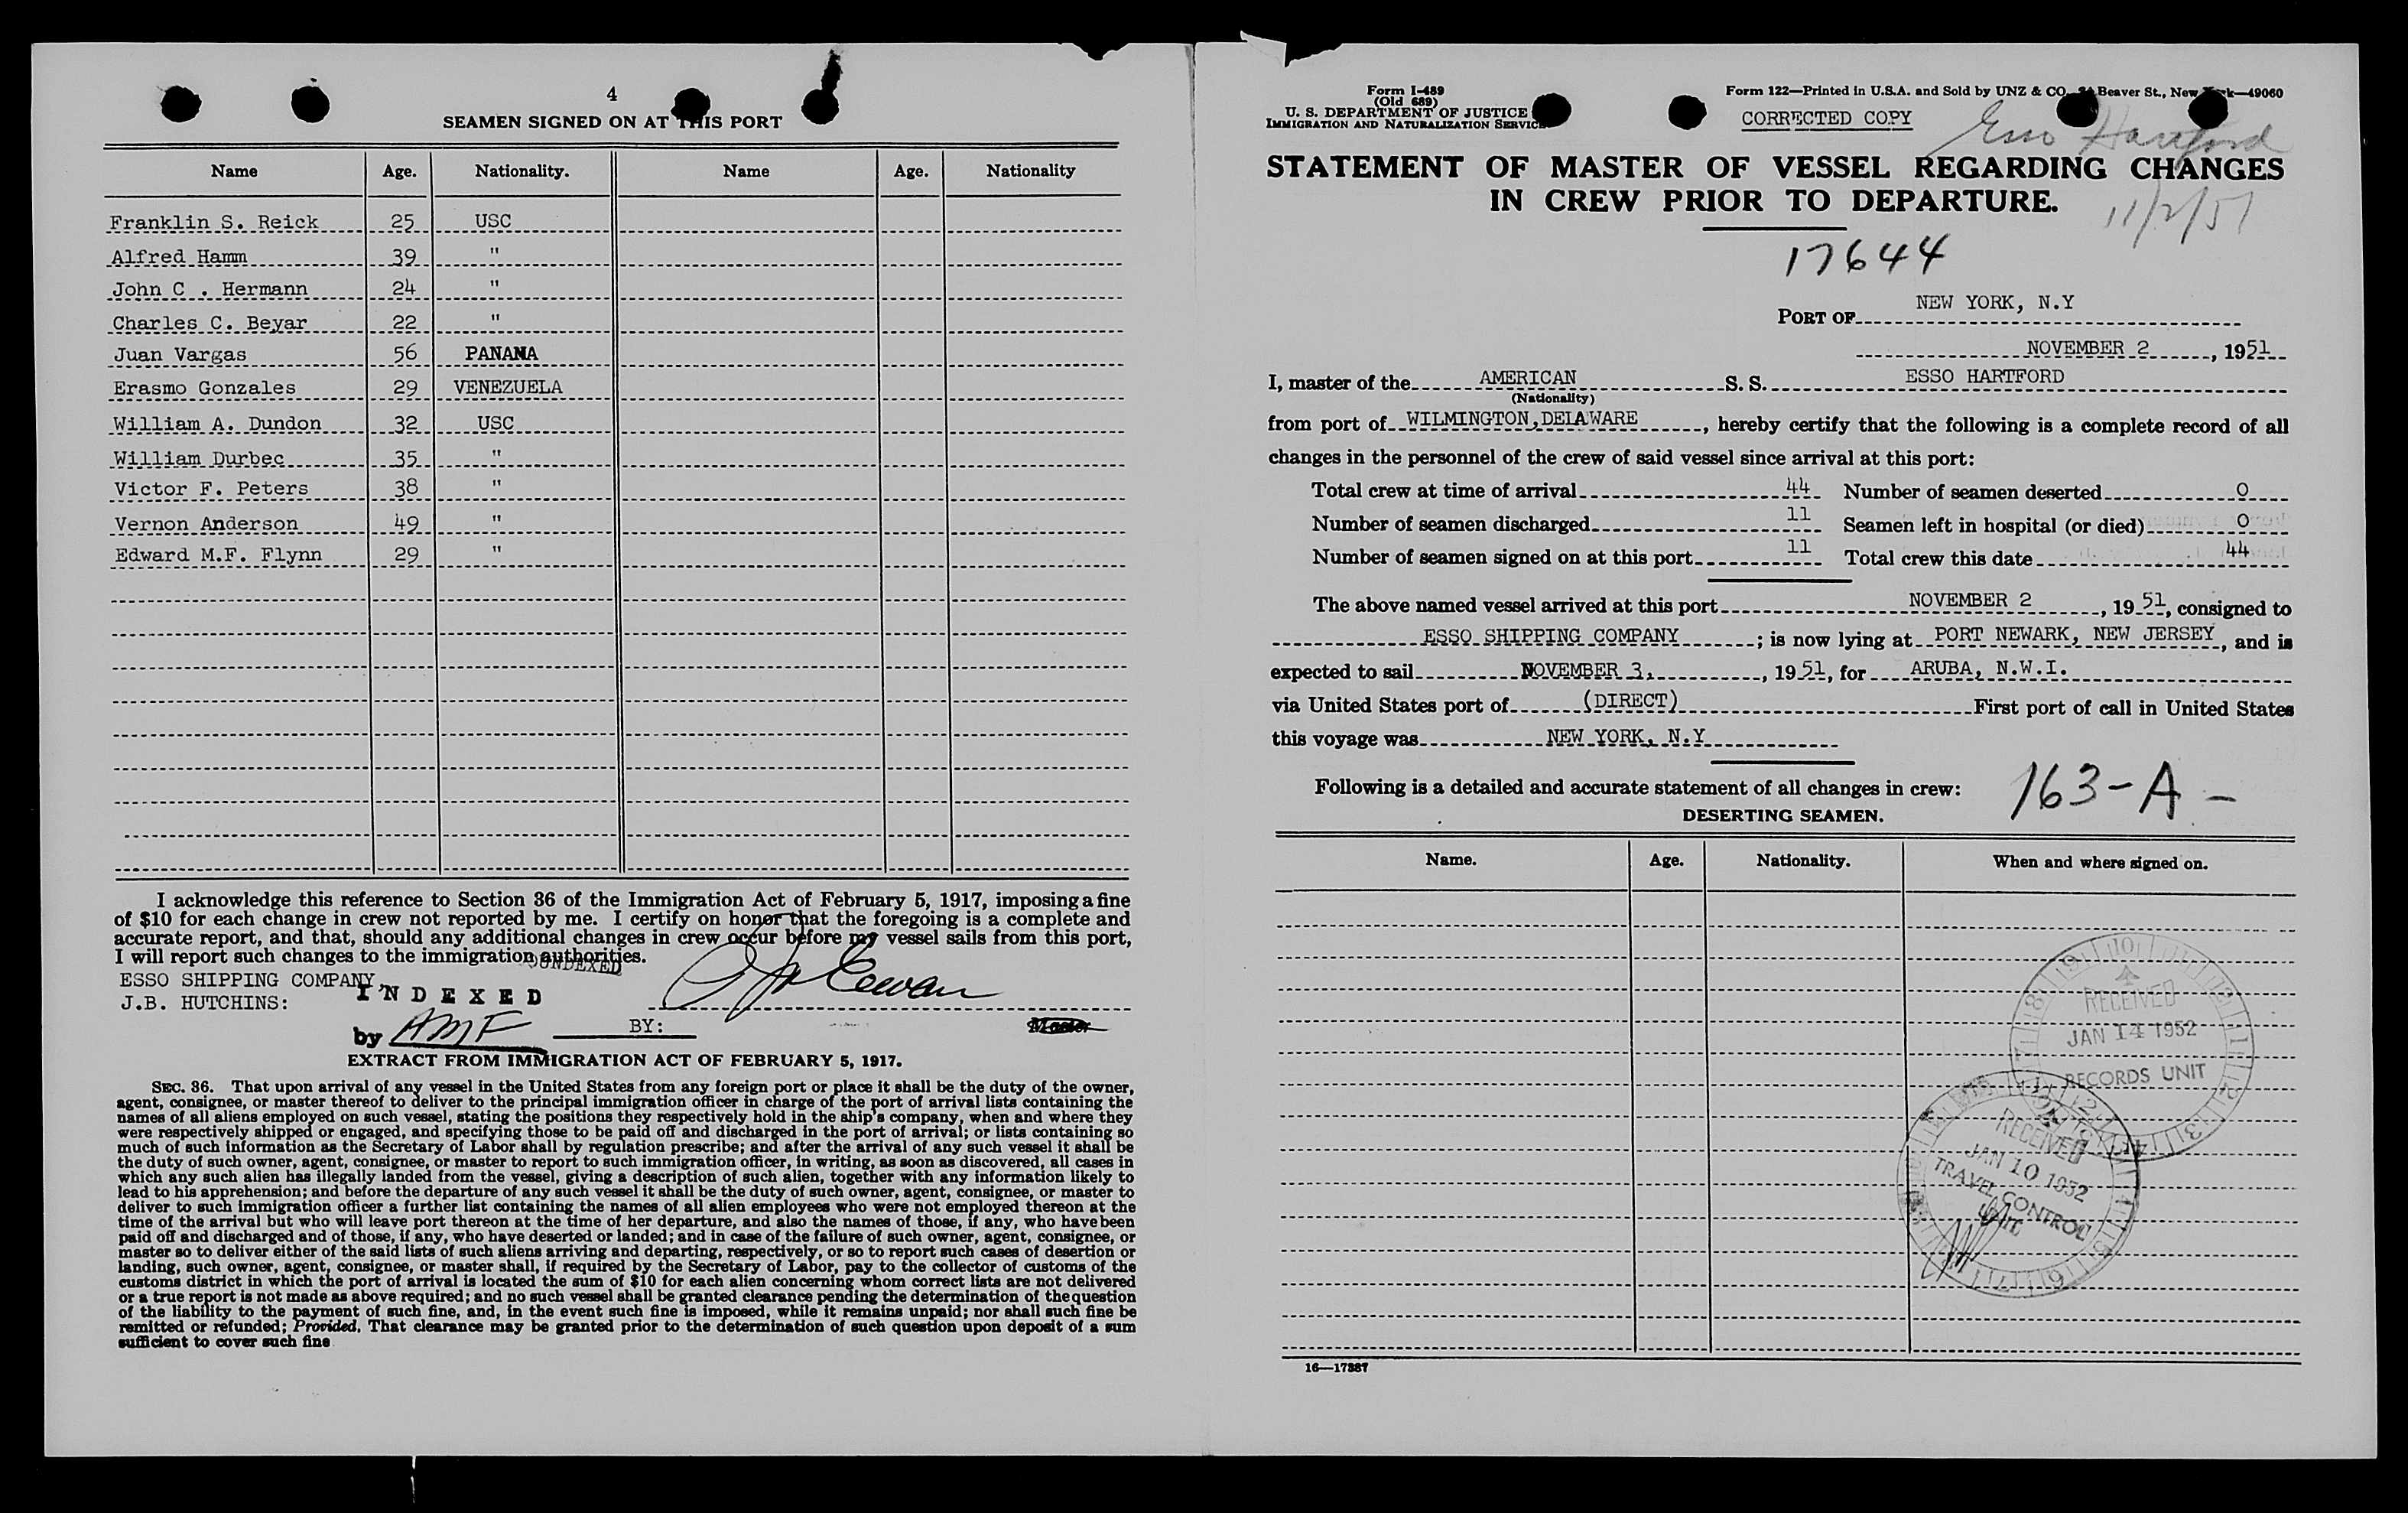 4
SEAMEN SIGNED ON AT THIS PORT
Name Age. Nationality. Name Age. Nationality
Franklin S. Reick 25 USC
Alfred Hamm 39 "
John C . Hermann 24 "
Charles C. Beyar 22 "
Juan Vargas 56 PANAMA
Erasmo Gonzales 29 VENEZUELA
William A. Dundon 32 USC
William Durbec 35 "
Victor F. Peters 38 "
Vernon Anderson 49 "
Edward M.F. Flynn 29 "
I acknowledge this reference to Section 36 of the Immigration Act of February 5, 1917, imposing a fine
of $10 for each change in crew not reported by me. I certify on honor that the foregoing is a complete and
accurate report, and that, should any additional changes in crew occur before my vessel sails from this port,
I will report such changes to the immigration authorities.
ESSO SHIPPING COMPANY,
J.B. HUTCHINS:
INDEXED
by AMF
BY:
Master
EXTRACT FROM IMMIGRATION ACT OF FEBRUARY 5, 1917.
SEC. 36. That upon arrival of any vessel in the United States from any foreign port or place it shall be the duty of the owner,
agent, consignee, or master thereof to deliver to the principal immigration officer in charge of the port of arrival lists containing the
names of all aliens employed on such vessel, stating the positions they respectively hold in the ship's company, when and where they
were respectively shipped or engaged, and specifying those to be paid off and discharged in the port of arrival; or lists containing so
much of such information as the Secretary of Labor shall by regulation prescribe; and after the arrival of any such vessel it shall be
the duty of such owner, agent, consignee, or master to report to such immigration officer, in writing, as soon as discovered, all cases in
which any such alien has illegally landed from the vessel, giving a description of such alien, together with any information likely to
lead to his apprehension; and before the departure of any such vessel it shall be the duty of such owner, agent, consignee, or master to
deliver to such immigration officer a further list containing the names of all alien employees who were not employed thereon at the
time of the arrival but who will leave port thereon at the time of her departure, and also the names of those, if any, who have been
paid off and discharged and of those, if any, who have deserted or landed; and in case of the failure of such owner, agent, consignee, or
master so to deliver either of the said lists of such aliens arriving and departing, respectively, or so to report such cases of desertion or
landing, such owner, agent, consignee, or master shall, if required by the Secretary of Labor, pay to the collector of customs of the
customs district in which the port of arrival is located the sum of $10 for each alien concerning whom correct lists are not delivered
or a true report is not made as above required; and no such vessel shall be granted clearance pending the determination of the question
of the liability to the payment of such fine, and, in the event such fine is imposed, while it remains unpaid; nor shall such fine be
remitted or refunded; Provided, That clearance may be granted prior to the determination of such question upon deposit of a sum
sufficient to cover such fine
Form I-489
(Old 689)
U. S. DEPARTMENT OF JUSTICE
IMMIGRATION AND NATURALIZATION SERVICE
Form 122—Printed in U.S.A. and Sold by UNZ & CO. Beaver St., New York—49060
CORRECTED COPY
Esso Hartford
STATEMENT OF MASTER OF VESSEL REGARDING CHANGES
IN CREW PRIOR TO DEPARTURE.
11/2/51
17644
PORT OF NEW YORK, N.Y
NOVEMBER 2, 1951
I, master of the AMERICAN S. S. ESSO HARTFORD
(Nationality)
from port of WILMINGTON,DELAWARE, hereby certify that the following is a complete record of all
changes in the personnel of the crew of said vessel since arrival at this port:
Total crew at time of arrival 44 Number of seamen deserted 0
Number of seamen discharged 11 Seamen left in hospital (or died) 0
Number of seamen signed on at this port 11 Total crew this date 44
The above named vessel arrived at this port NOVEMBER 2, 1951, consigned to
ESSO SHIPPING COMPANY; is now lying at PORT NEWARK, NEW JERSEY, and is
expected to sail NOVEMBER 3, 1951, for ARUBA, N.W.I.
via United States port of (DIRECT) First port of call in United States
this voyage was NEW YORK, N.Y
Following is a detailed and accurate statement of all changes in crew:
163-A-
DESERTING SEAMEN.
Name. Age. Nationality. When and where signed on.
RECEIVED
JAN 14 1952
RECORDS UNIT
RECEIVED
JAN 10 1952
TRAVEL CONTROL
UNIT
16—17887